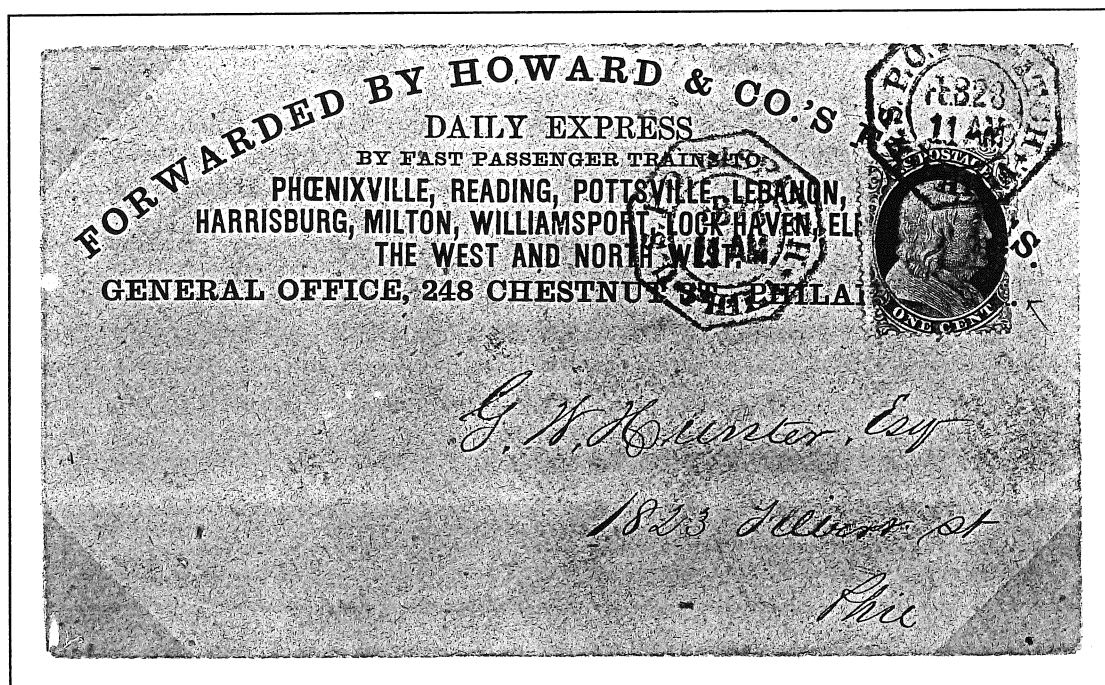 FORWARDED BY HOWARD & CO.'S
DAILY EXPRESS
BY FAST PASSENGER TRAINS TO
PHŒNIXVILLE, READING, POTTSVILLE, LEBANON,
HARRISBURG, MILTON, WILLIAMSPORT, LOCK HAVEN, EL
THE WEST AND NORTH WEST.
GENERAL OFFICE, 248 CHESTNUT ST. PHILA
S.
U.S.P.O. TCH
FEB 28
11 AM
PHILA
11 AM
U.S. POSTAGE
ONE CENT
G. W. Hunter, Esq
1823 st
Phil